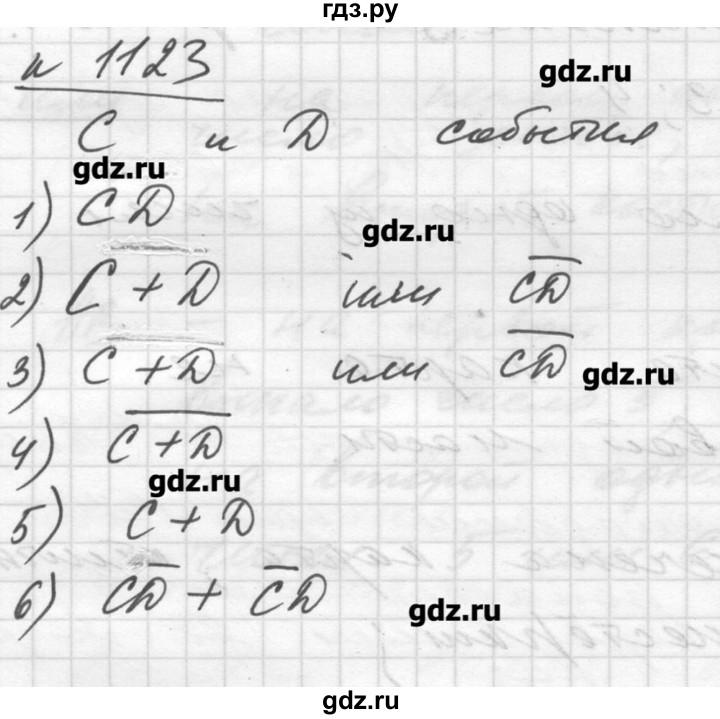 гдз.ру
н 1123
gdz.ru
C и D события
gdz.ru
1) CD
gdz.ru
2) C + D или C̅D̅
3) C + D или C̅D̅
gdz.ru
4) C̅ ̅+̅ ̅D̅
gdz.ru
5) C + D
6) CD̅ + C̅D
gdz.ru
gdz.ru